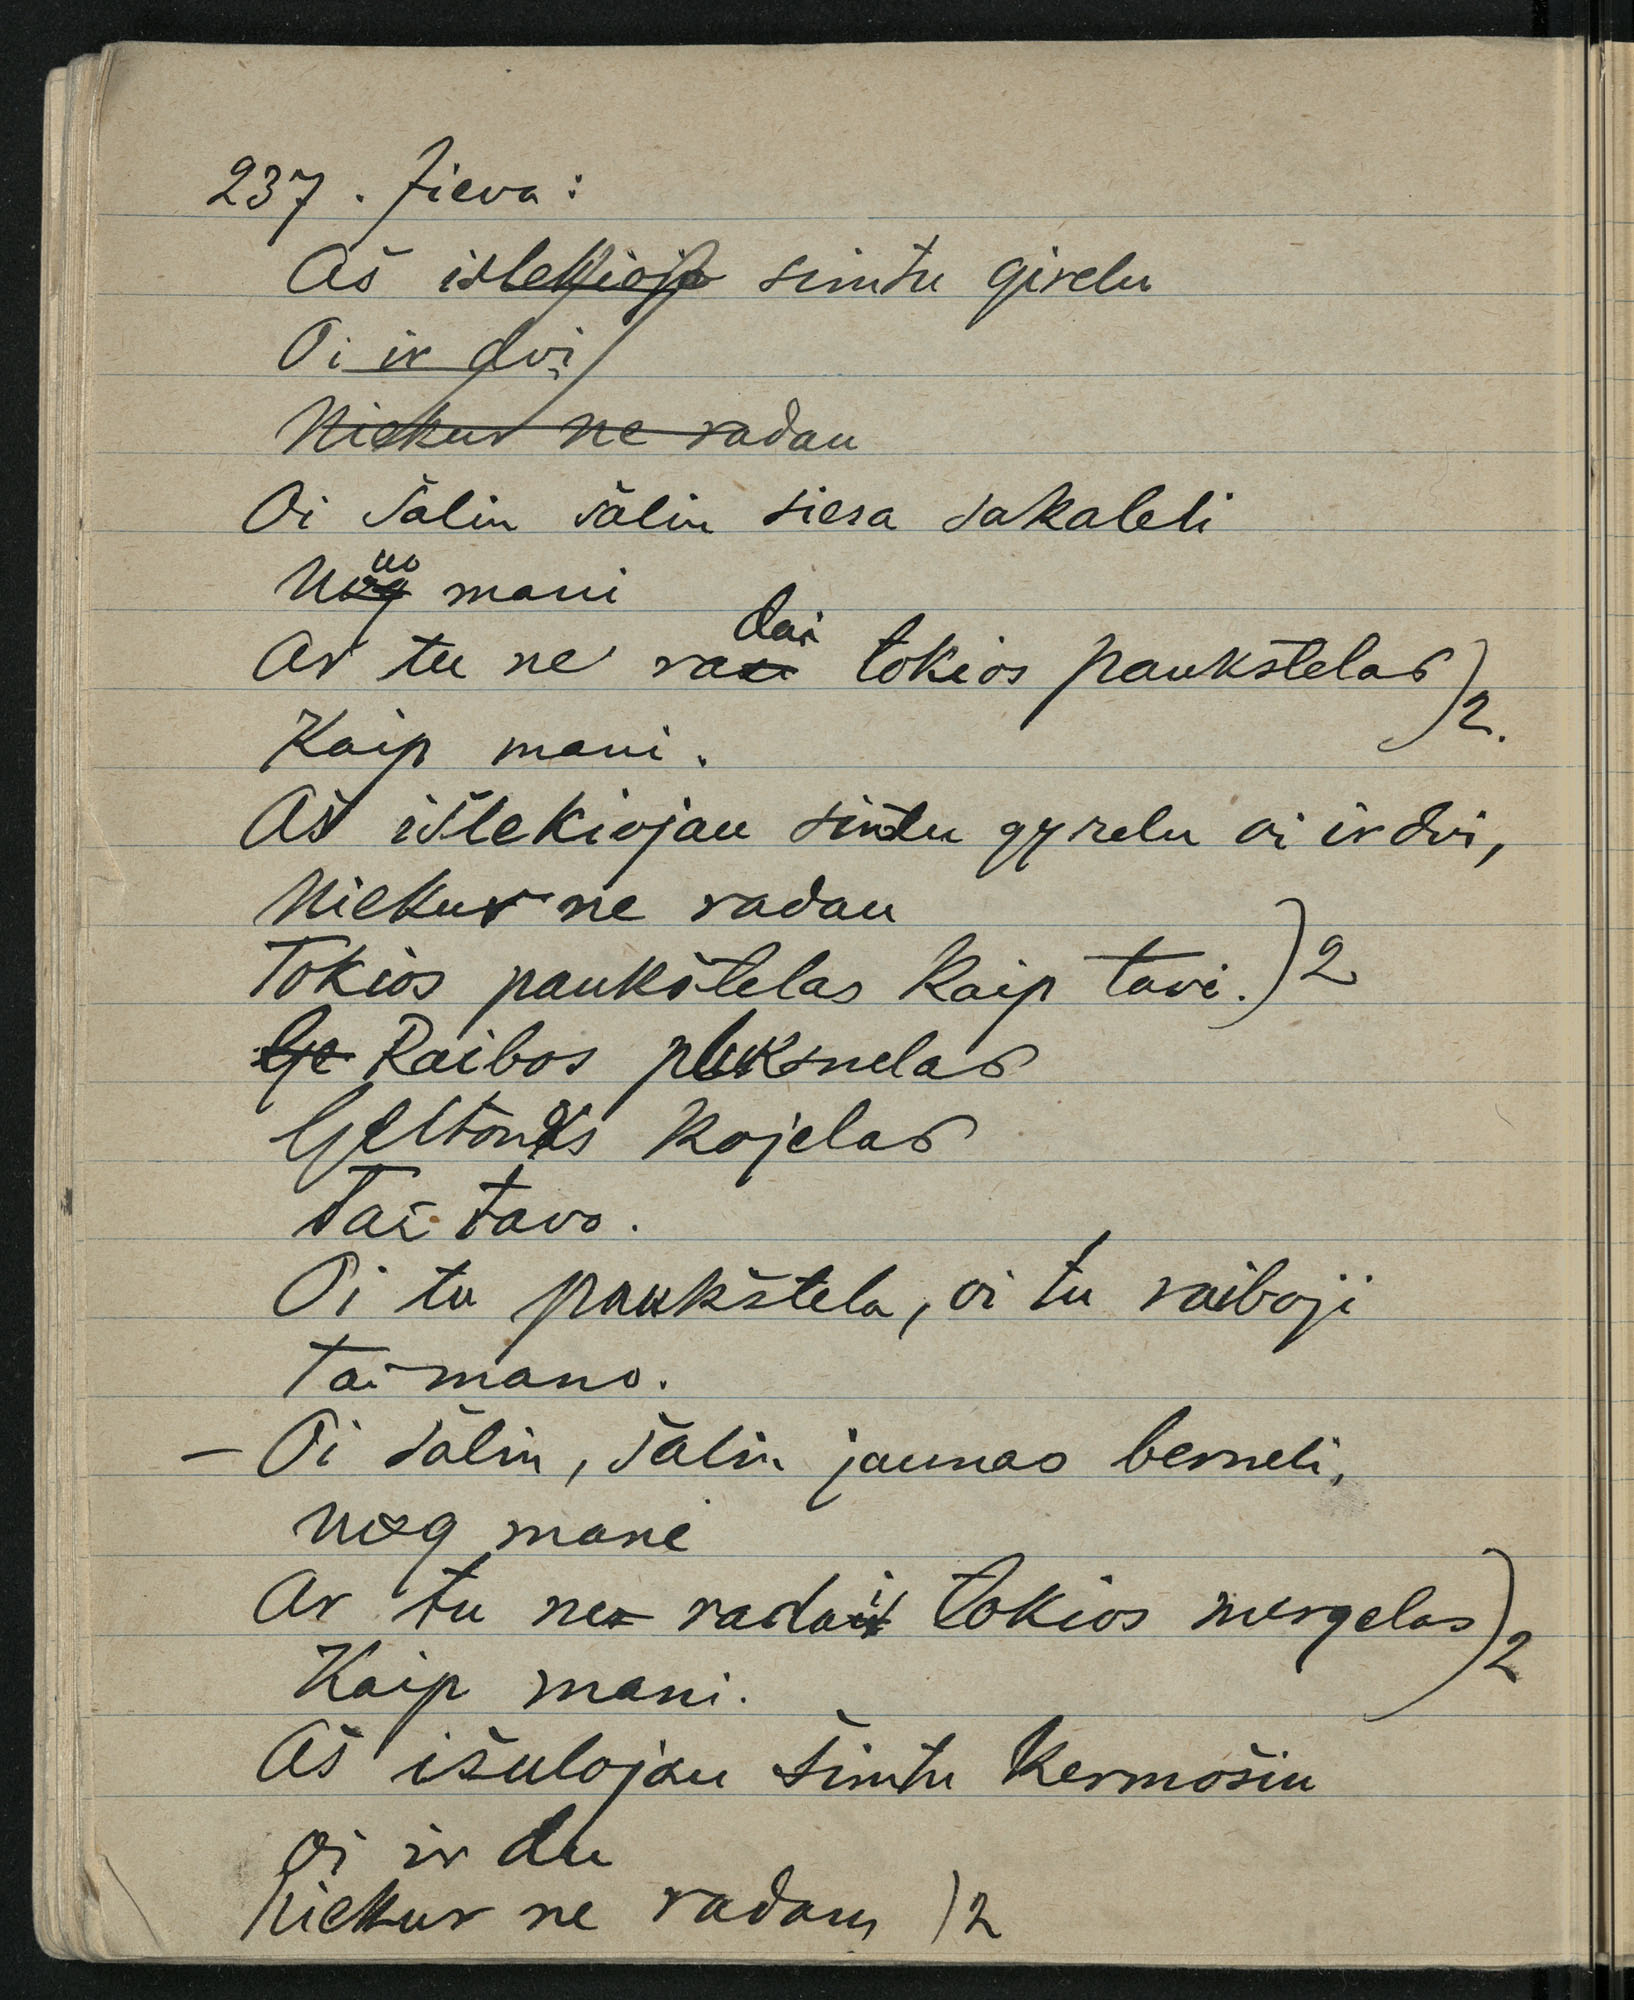 237. Jieva:
Aš išlekioja simtu girelu
Oi ir dvi
Niekur ne radau
Oi šalin šalin siesa sakaleli
Nuo mani
Ar tu ne radai tokios paukštelas )2.
Kaip mani.
Aš išlekiojau simtu gyrelu oi ir dvi,
Niekur ne radau
Tokios paukštelas kaip tavi. )2
Ge Raibos pluksnelas
Geltonos kojelas
Tai tavo.
Oi tu paukštela, oi tu raiboji
Tai mano.
– Oi šalin, šalin jaunas berneli,
nog mane
Ar tu ne radai tokios mergelas )2
Kaip mani.
Aš išulojau šimtu kermošiu
oi ir du
niekur ne radau, )2